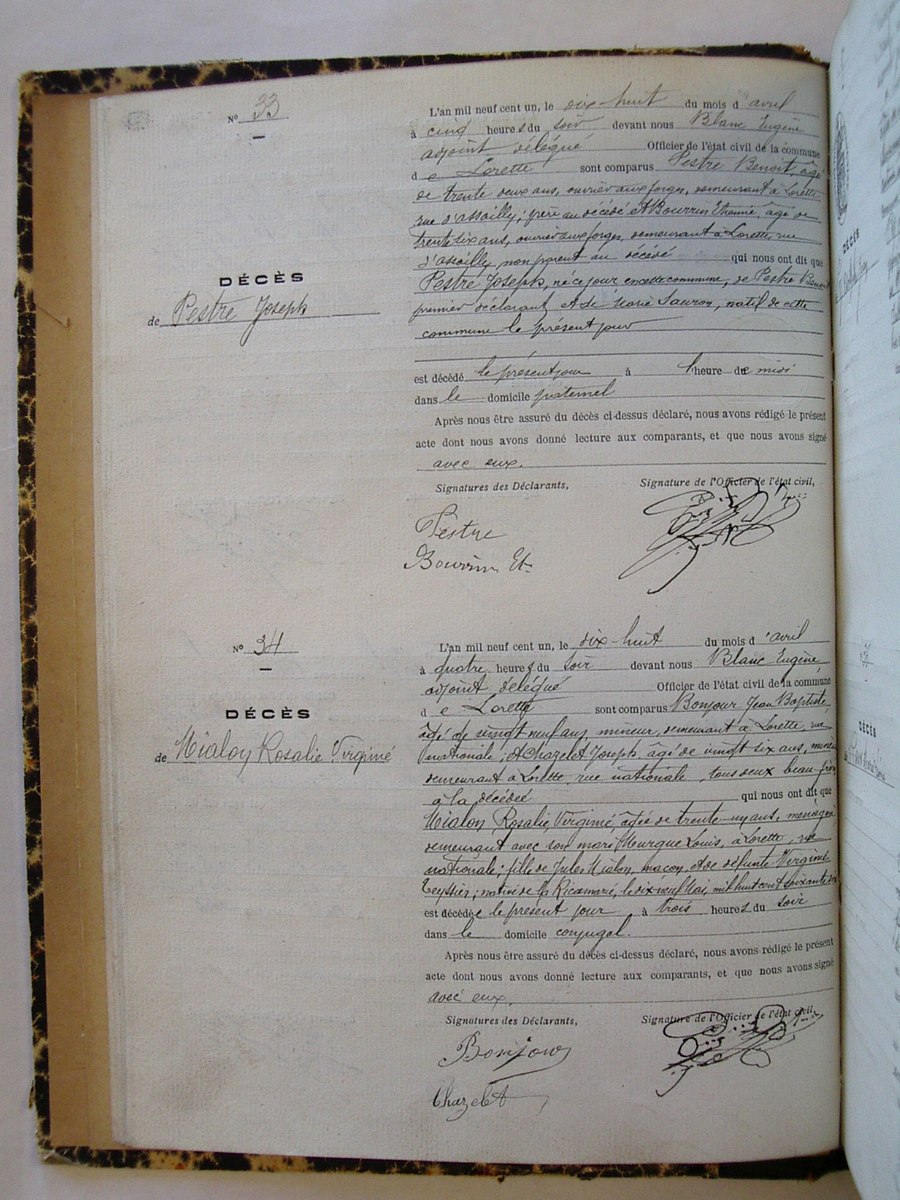 N° 33
DÉCÈS
de Pestre Joseph
L'an mil neuf cent un, le dix-huit du mois d avril
à cinq heures du soir devant nous Blanc Eugène
adjoint délégué Officier de l'état civil de la commune
de Lorette sont comparus Pestre Benoit, âgé
de trente deux ans, ouvrier aux forges, demeurant à Lorette
rue d'assailly; père au décédé Et Bourrin Etienne, âgé de
trente six ans, ouvrier aux forges, demeurant à Lorette, rue
d'assailly, non parent au décédé qui nous ont dit que
Pestre Joseph, né ce jour en cette commune, de Pestre Benoit
premier déclarant Et de Marie Sauron, natif de cette
commune le présent jour
est décédé le présent jour à 1 heure de midi
dans le domicile paternel
Après nous être assuré du décès ci-dessus déclaré, nous avons rédigé le présent
acte dont nous avons donné lecture aux comparants, et que nous avons signé
avec eux.
Signatures des Déclarants, Signature de l'Officier de l'état civil,
Pestre
Bourrin Et.
N° 34
DÉCÈS
de Mialon Rosalie Virginie
L'an mil neuf cent un, le dix-huit du mois d'avril
à quatre heures du soir devant nous Blanc Eugène,
adjoint délégué Officier de la commune
de Lorette sont comparus Bonjour Jean Baptiste,
âgé de vingt neuf ans, mineur, demeurant à Lorette, rue
nationale; Et Chazelet Joseph, âgé de vingt six ans, mineur
demeurant à Lorette, rue nationale, tous deux beau-frère
à la décédée qui nous ont dit que
Mialon Rosalie Virginie, âgée de trente-un ans, ménagère
demeurant avec son mari Murgue Louis, à Lorette, rue
nationale; fille de Jules Mialon, maçon, Et de défunte Virginie
Teyssier; native de la Ricamarie, le dix neuf Mai, mil huit cent soixante dix
est décédée le présent jour à trois heures du soir
dans le domicile conjugal.
Après nous être assuré du décès ci-dessus déclaré, nous avons rédigé le présent
acte dont nous avons donné lecture aux comparants, et que nous avons signé
avec eux.
Signatures des Déclarants, Signature de l'Officier de l'état civil,
Bonjour
Chazelet
DÉCÈS
DÉCÈS